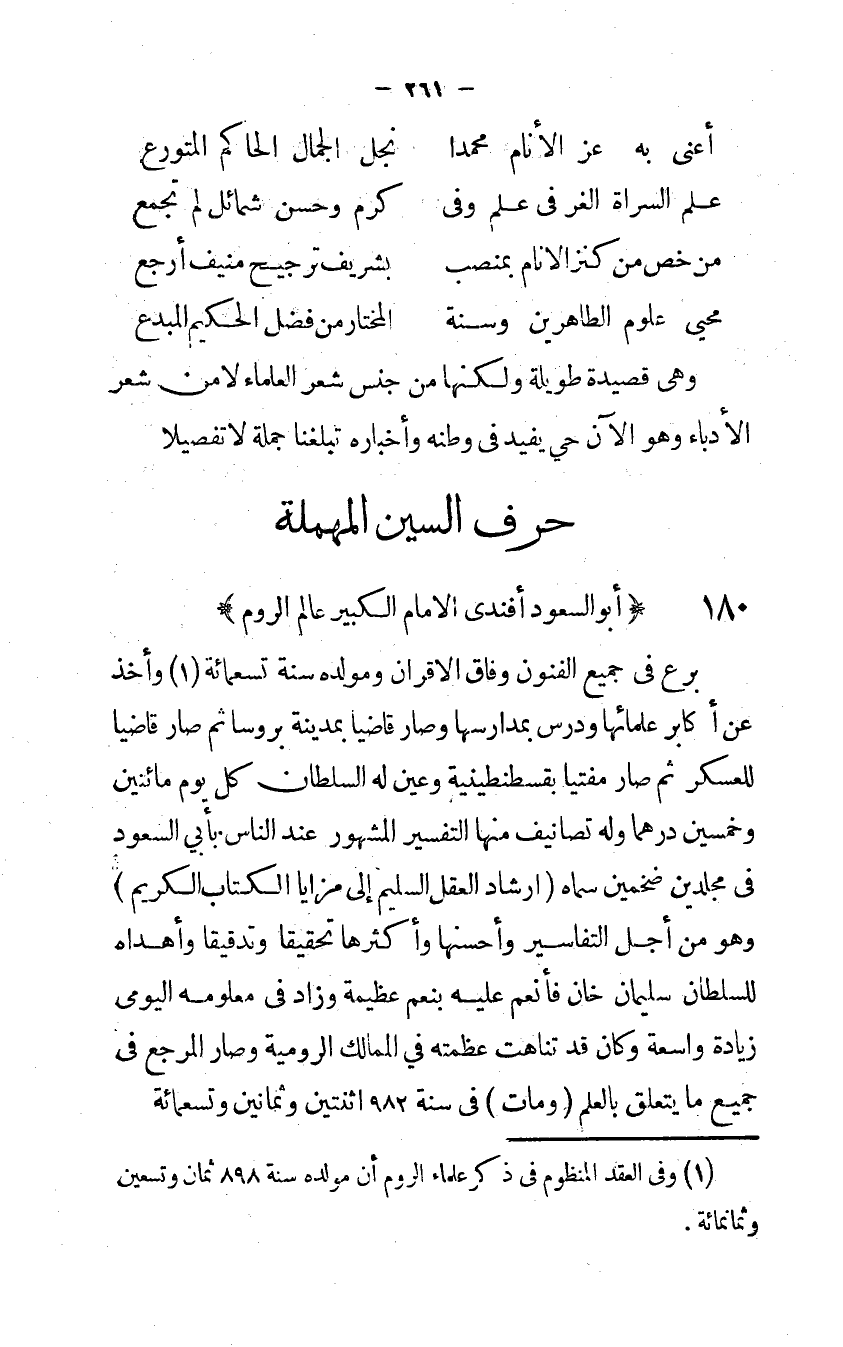 - ٢٦١ -
أعنى به عز الأنام محمدا نجل الجمال الحاكم المتورع
علم السراة الغر فى علم وفى كرم وحسن شمائل لم تجمع
من خص من كنز الانام بمنصب بشريف ترجيح منيف أرجع
محيي علوم الطاهرين وسنة المختار من فضل الحكيم المبدع
وهى قصيدة طويلة ولكنها من جنس شعر العلماء لا من شعر
الأدباء وهو الآن حي يفيد فى وطنه وأخباره تبلغنا جملة لا تفصيلا
حرف السين المهملة
١٨٠ ﴿ أبو السعود أفندى الامام الكبير عالم الروم ﴾
برع فى جميع الفنون وفاق الاقران ومولده سنة تسعمائة (١) وأخذ
عن أكابر علمائها ودرس بمدارسها وصار قاضيا بمدينة بروسا ثم صار قاضيا
للعسكر ثم صار مفتيا بقسطنطينية وعين له السلطان كل يوم مائتين
وخمسين درهما وله تصانيف منها التفسير المشهور عند الناس بأبي السعود
فى مجلدين ضخمين سماه ( ارشاد العقل السليم إلى مزايا الكتاب الكريم )
وهو من أجل التفاسير وأحسنها وأكثرها تحقيقا وتدقيقا وأهداه
للسلطان سليمان خان فأنعم عليه بنعم عظيمة وزاد فى معلومه اليومى
زيادة واسعة وكان قد تناهت عظمته في الممالك الرومية وصار المرجع فى
جميع ما يتعلق بالعلم ( ومات ) فى سنة ٩٨٢ اثنتين وثمانين وتسعمائة
(١) وفى العقد المنظوم فى ذكر علماء الروم أن مولده سنة ٨٩٨ ثمان وتسعين
وثمانمائة .